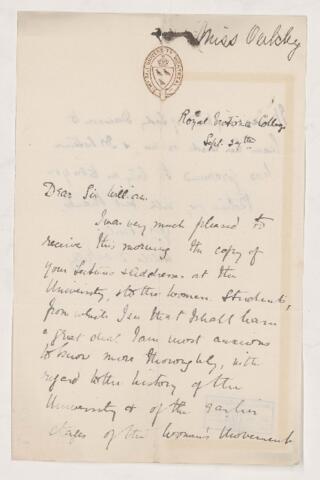 Miss Oakley
Royal Victoria College
Sept. 29th
Dear Sir William,
I was very much pleased to
receive this morning the copy of
your Lectures & Addresses at the
University, & to the Women Students,
from which I see that I shall learn
a great deal. I am most anxious
to know more thoroughly, with
regard to the history of the
University & of the earlier
stages of the Women's Movement